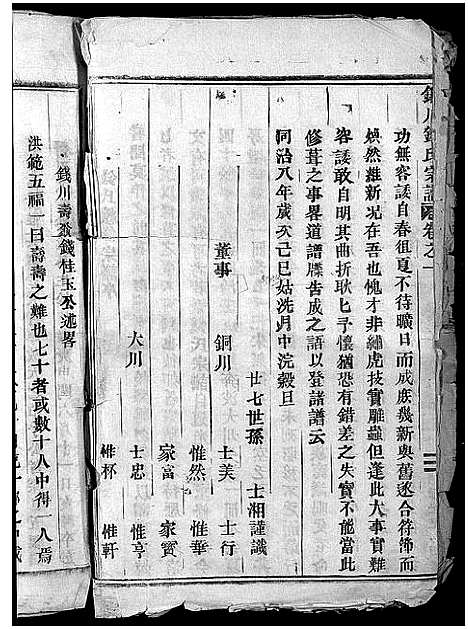 錢川錢氏宗譜 卷之一
功無容諉自春徂夏不待曠日而成庶幾新與舊遂合符節而
煥然維新况在吾也愧才非繡虎技實雕蟲但逢此大事實難
容諉敢自明其曲折耿匕予懷猶恐有錯差之失實不能當此
修葺之事畧道譜牒告成之語以登諸譜云
同治八年歲次己巳姑洗月中浣穀旦
廿七世孫 士湘謹識
董事 銅川 士美 士行
惟然 惟華
家富 家寶
大川 士忠 惟亨
惟杯 惟軒
錢川壽翁錢桂玉公述畧
洪範五福一曰壽壽之難也七十者或數十人中得一人焉